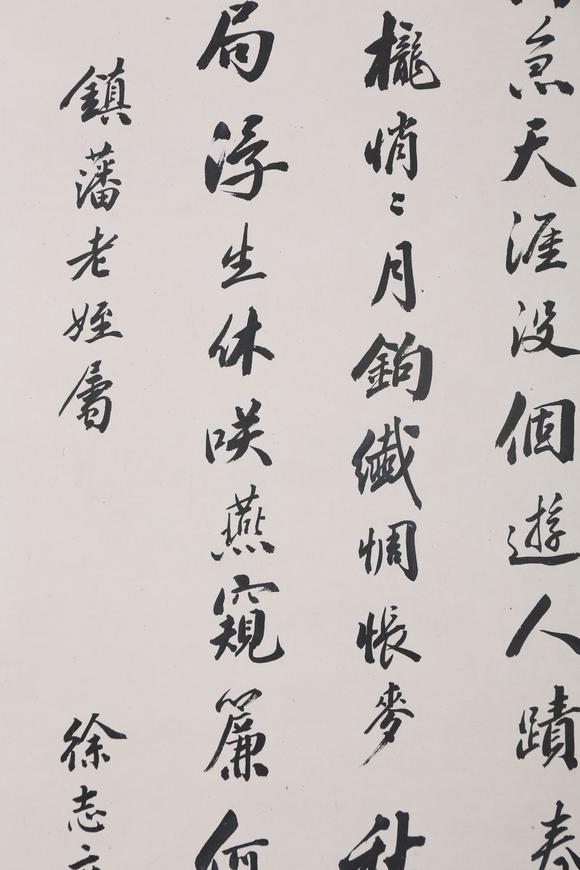 天涯没個遊人蹟春
櫳悄〻月鉤纖惆悵麥秋
局浮生休咲燕窺簾何
鎮藩老姪屬
徐志